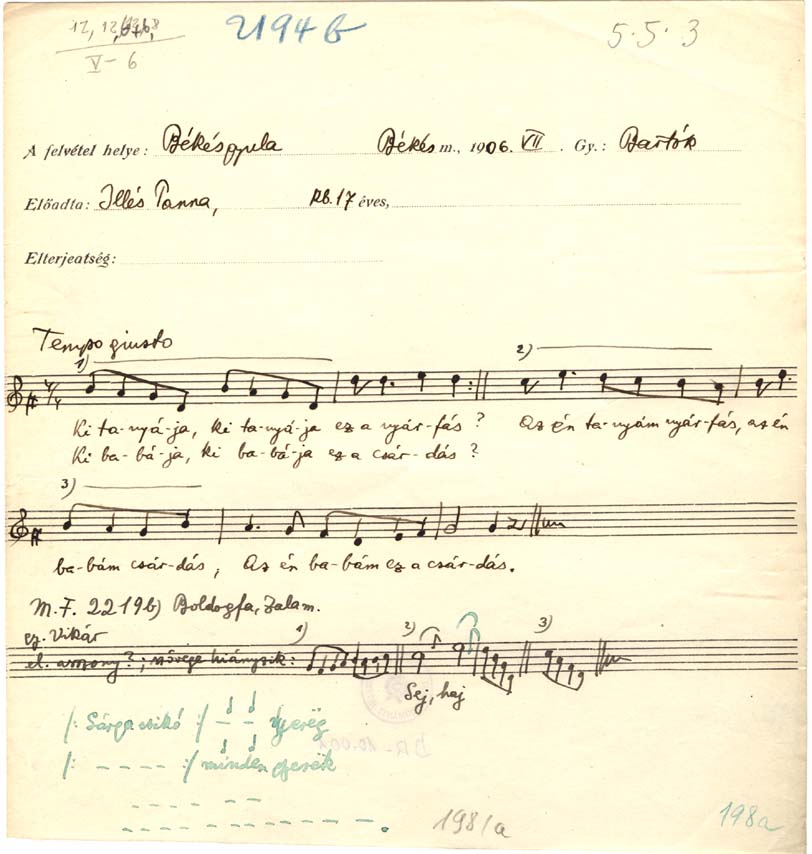 12, 12,
V - 6
2194 b
5.5.3
A felvétel helye: Békésgyula Békés m., 1906. VII. Gy.: Bartók
Előadta: Illés Panna, kb. 17 éves,
Elterjeatség:
Tempo giusto
1) 2)
Ki ta-nyá-ja, ki ta-nyá-ja ez a nyár-fás? Az én ta-nyám nyár-fás, az én
Ki ba-bá-ja, ki ba-bá-ja ez a csár-dás?
3)
ba-bám csár-dás, Az én ba-bám ez a csár-dás.
M.F. 2219b) Boldogfa, Zalam.
gy. Vikár
el. asszony?; szövege hiányzik: 1) 2) 3)
Sej, haj
/: Sárga csikó :/ — —
/: - - - - :/ minden
198/a
198a